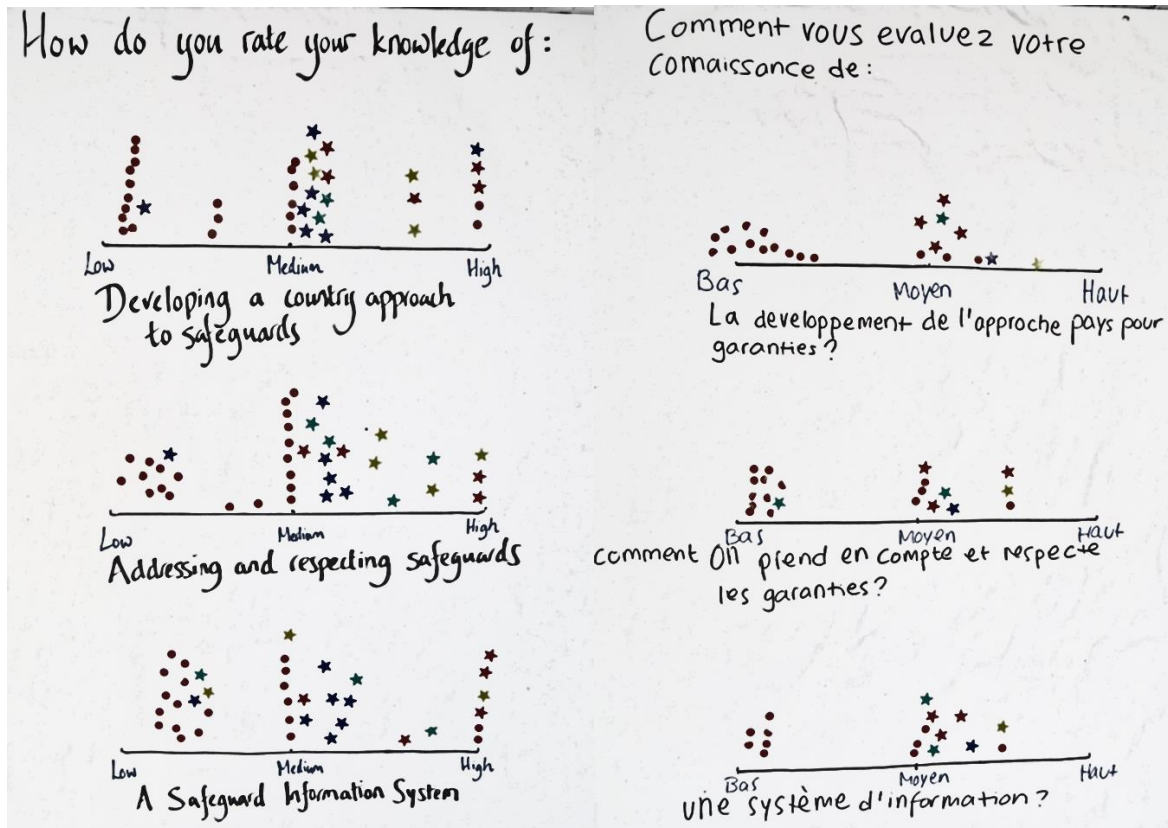 How do you rate your knowledge of:
Low Medium High
Developing a country approach
to safeguards
Low Medium High
Addressing and respecting safeguards
Low Medium High
A Safeguard Information System
Comment vous evaluez votre
connaissance de:
Bas Moyen Haut
La developpement de l'approche pays pour
garanties?
Bas Moyen Haut
comment On prend en compte et respecte
les garanties?
Bas Moyen Haut
une système d'information?